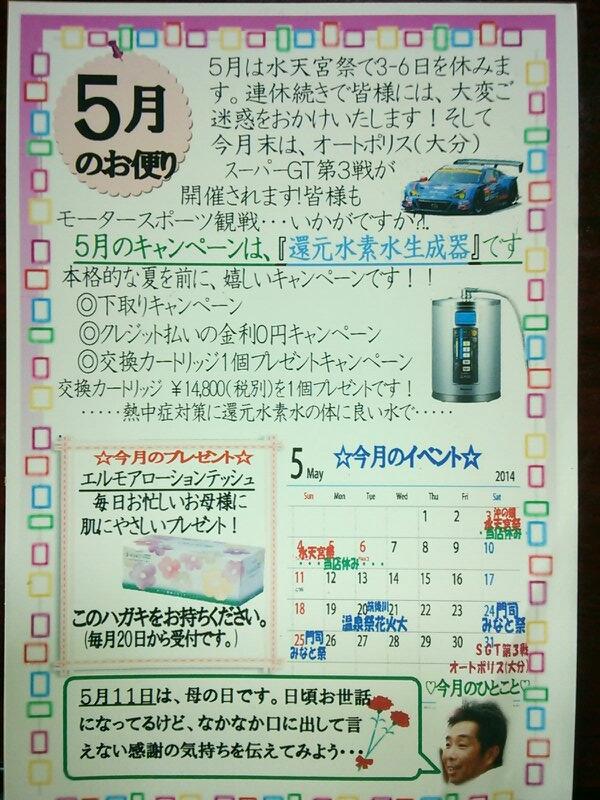 5月
のお便り
5月は水天宮祭で3-6日を休みま
す。連休続きで皆様には、大変ご
迷惑をおかけいたします！そして
今月末は、オートポリス(大分)
スーパーGT第3戦が
開催されます!皆様も
モータースポーツ観戦・・・いかがですか?!
5月のキャンペーンは、『還元水素水生成器』です
本格的な夏を前に、嬉しいキャンペーンです！！
◎下取りキャンペーン
◎クレジット払いの金利0円キャンペーン
◎交換カートリッジ1個プレゼントキャンペーン
交換カートリッジ ¥14,800(税別)を1個プレゼントです！
・・・・・熱中症対策に還元水素水の体に良い水で・・・・・
☆今月のプレゼント☆
エルモアローションテッシュ
毎日お忙しいお母様に
肌にやさしいプレゼント！
このハガキをお持ちください。
(毎月20日から受付です。)
5 May ☆今月のイベント☆ 2014
Sun Mon Tue Wed Thu Fri Sat
1 2 3 沖の端
水天宮祭
当店休み・・
4 5 6 7 8 9 10
水天宮祭
・・・当店休み・・・・
11 12 13 14 15 16 17
18 19 20 21 22 23 24 門司
筑後川
温泉祭花火大
みなと祭
25 門司 26 27 28 29 30 31
みなと祭
SGT第3戦
オートポリス(大分)
♡今月のひとこと♡
5月11日は、母の日です。日頃お世話
になってるけど、なかなか口に出して言
えない感謝の気持ちを伝えてみよう・・・